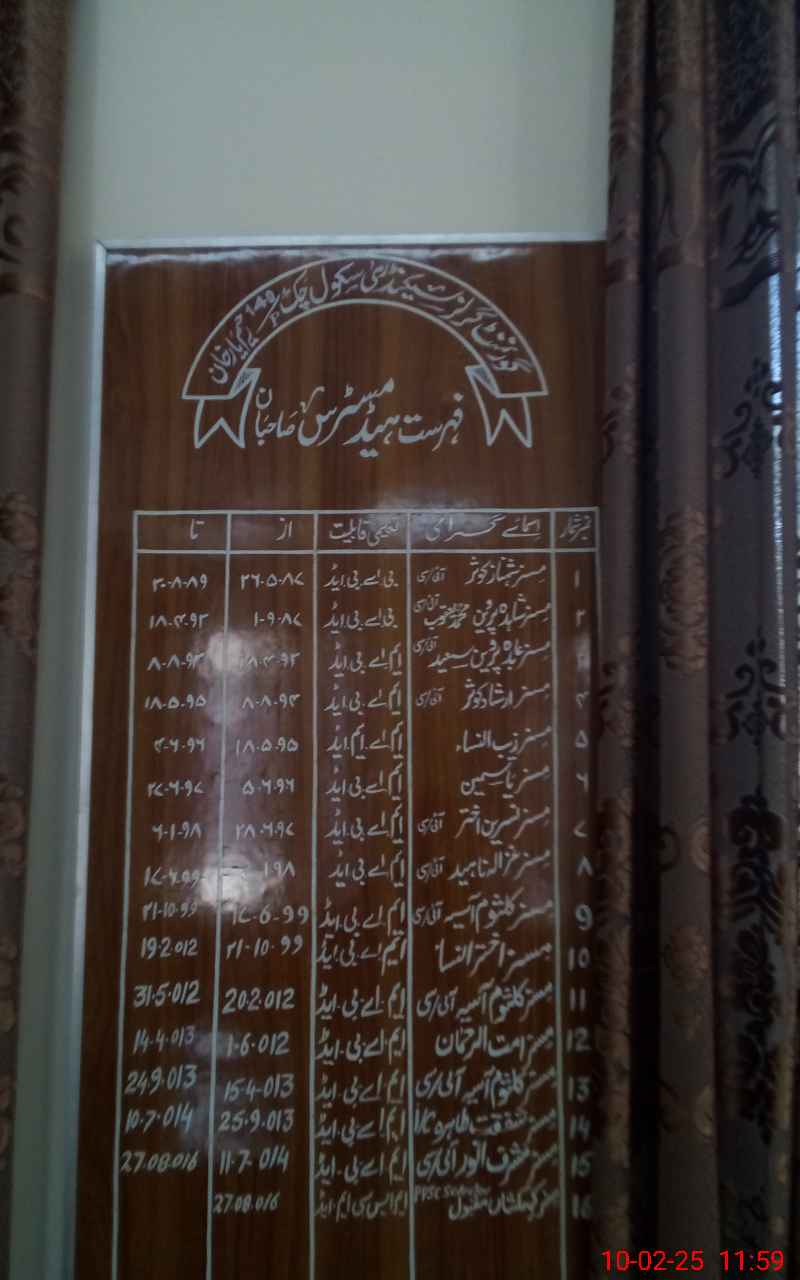 گورنمنٹ گرلز سیکنڈری سکول چک 149 P رحیم یار خان
فہرست ہیڈ مسٹریس صاحبان
نمبر شمار اسمائے گرامی تعلیمی قابلیت از تا
۱ مسز شہناز کوثر آئی سی بی اے بی ایڈ ۲۶-۵-۸۷ ۳۰-۸-۸۹
۲ مسز شاہدہ پروین محمد یعقوب آئی سی بی اے بی ایڈ ۱-۹-۸۷ ۱۸-۴-۹۳
۳ مسز عابدہ پروین سعید آئی سی ایم اے بی ایڈ ۱۸-۴-۹۳ ۸-۸-۹۴
۴ مسز ارشاد کوثر آئی سی ایم اے بی ایڈ ۸-۸-۹۴ ۱۸-۵-۹۵
۵ مسز زیب النساء ایم اے ایم ایڈ ۱۸-۵-۹۵ ۴-۶-۹۶
۶ مسز یاسمین ایم اے بی ایڈ ۵-۶-۹۶ ۲۷-۶-۹۷
۷ مسز نسرین اختر آئی سی ایم اے بی ایڈ ۲۸-۶-۹۷ ۶-۱-۹۸
۸ مسز غزالہ ناہید آئی سی ایم اے بی ایڈ ۱۷-۶-۹۹
9 مسز کلثوم آسیہ آئی سی ایم اے بی ایڈ ۱۷-6-99 ۲۱-10-99
10 مسز اختر النساء ایم اے بی ایڈ ۲۱-10-99 19-2-012
11 مسز کلثوم آسیہ آئی سی ایم اے بی ایڈ 20-2-012 31-5-012
12 مسز امت الرحمان ایم اے بی ایڈ 1-6-012 14-4-013
13 مسز کلثوم آسیہ آئی سی ایم اے بی ایڈ 15-4-013 24-9-013
14 مسز شفقت طاہرہ ایم اے بی ایڈ 25-9-013 10-7-014
15 مسز مشرف انور آئی سی ایم اے بی ایڈ 11-7-014 27-08-016
16 مسز کہکشاں مقبول PPSC ایم ایس سی ایم ایڈ 27-08-016
10-02-25 11:59